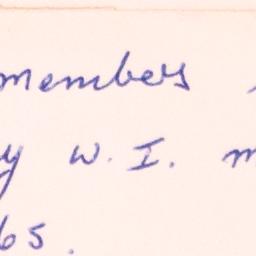 members
y W. I. m
65.